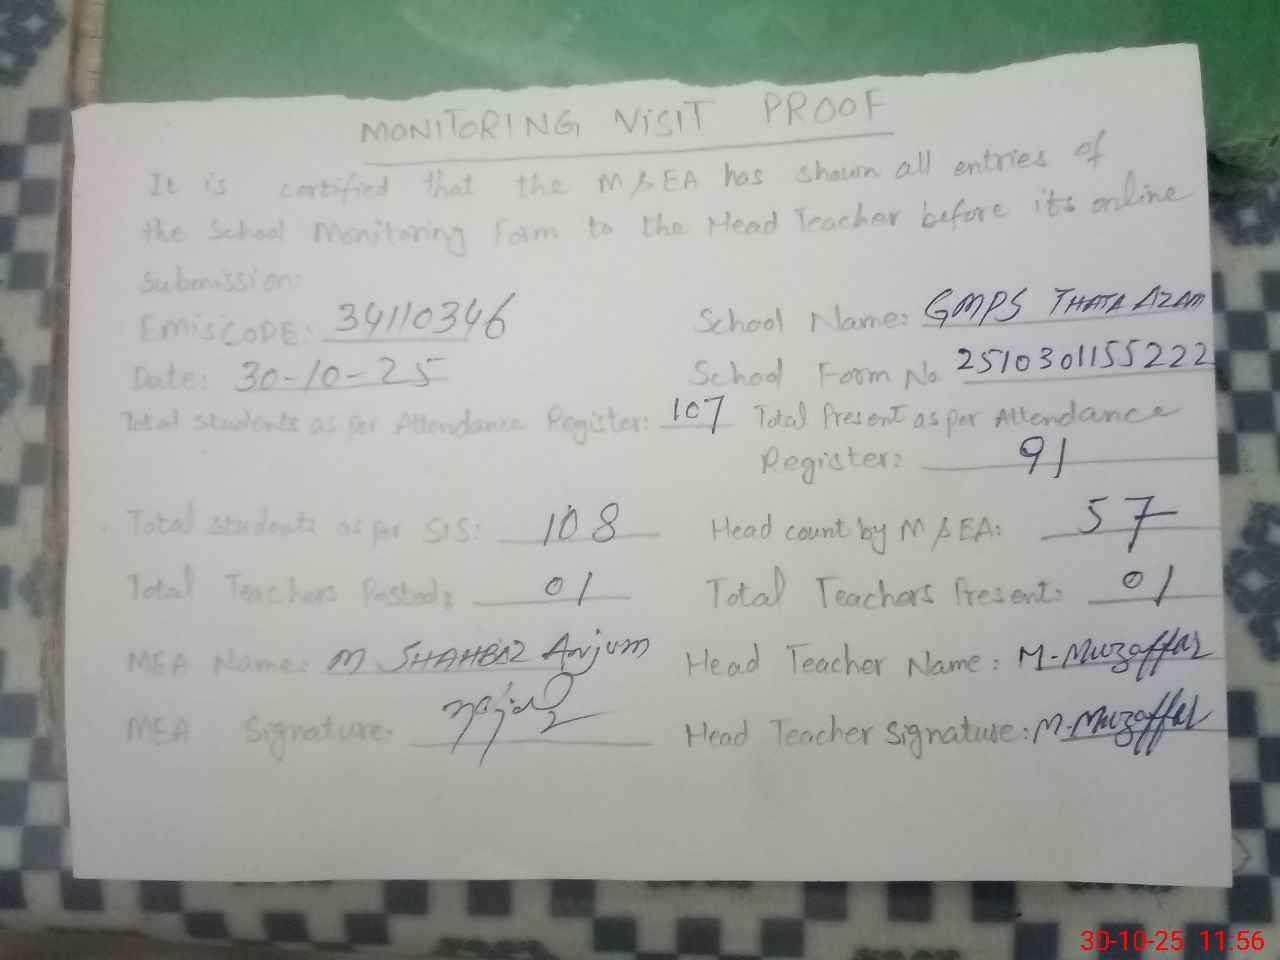 MONITORING VISIT PROOF
It is certified that the M&EA has shown all entries of
the School Monitoring Form to the Head Teacher before its online
Submission:
EmisCODE: 34110346 School Name: GMPS THATA AZAM
Date: 30-10-25 School Form No 2510301155222
Total Students as per Attendance Register: 107 Total Present as per Attendance
Register: 91
Total students as per SIS: 108 Head count by M&EA: 57
Total Teachers Posted: 01 Total Teachers Present: 01
MEA Name: M SHAHBAZ Anjum Head Teacher Name: M-Muzaffar
MEA Signature: Head Teacher Signature: M-Muzaffar
30-10-25 11:56